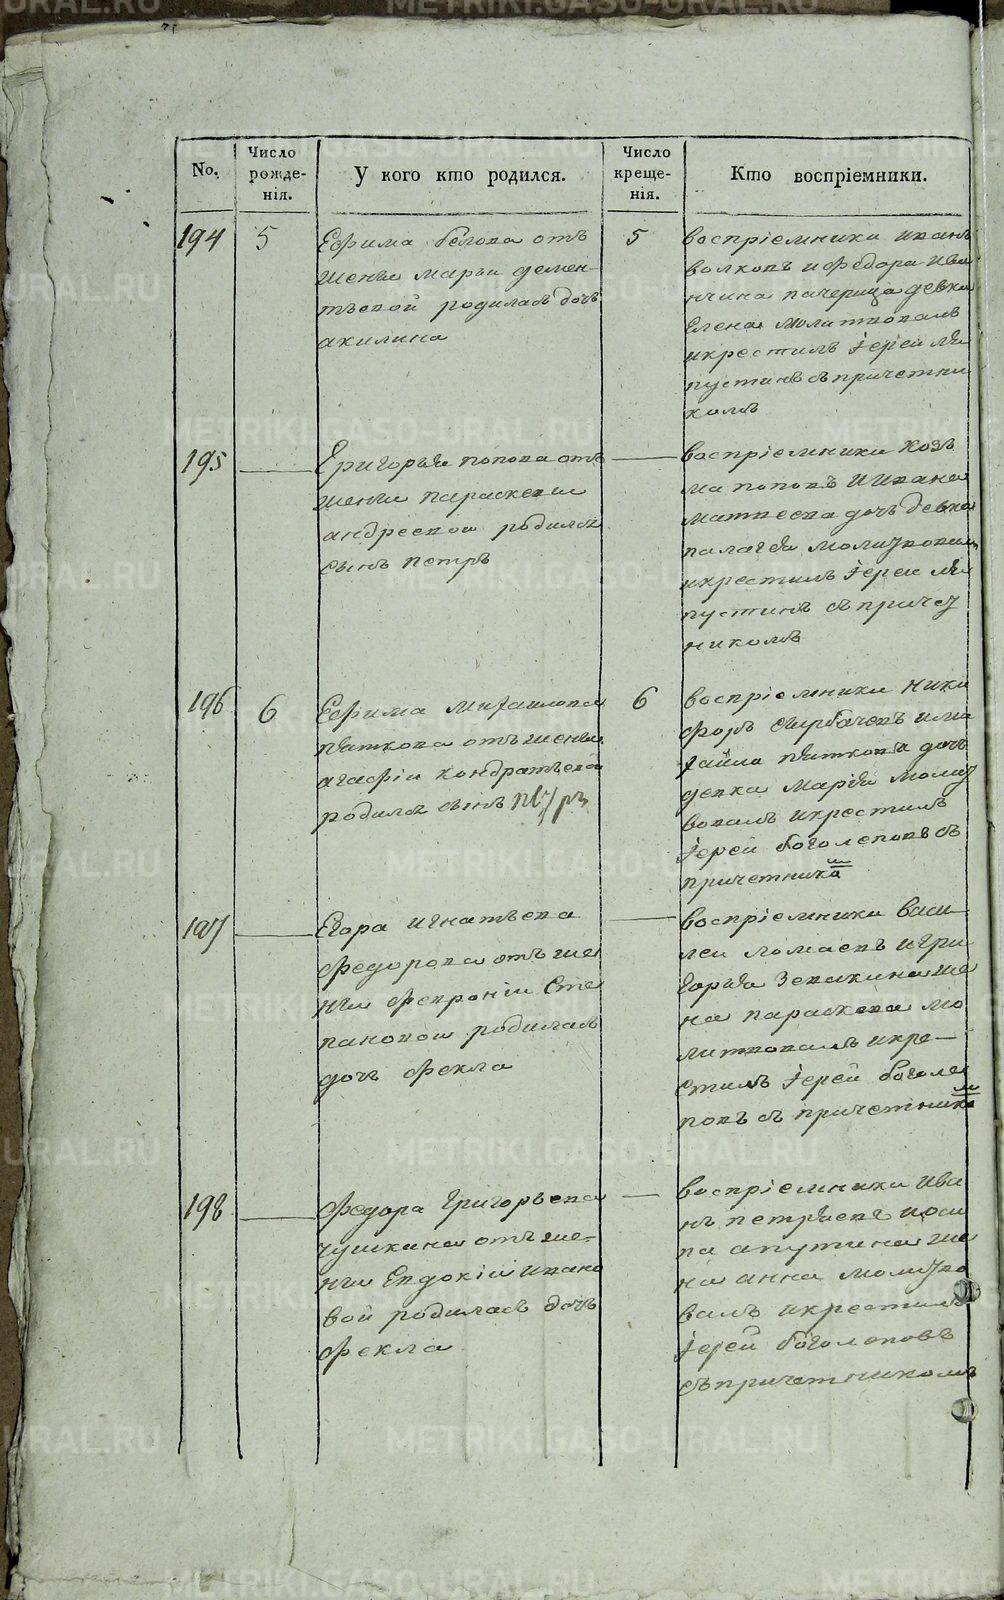 No.
Число рожде-нія.
У кого кто родился.
Число креще-нія.
Кто воспріемники.
194
5
Ефима белова отъ
жены марьи демен-
тьевой родилась дочь
акилина
5
воспріемники иванъ
волковъ и федора ива
пачерица девка
елена молитвовалъ
икрестилъ іерей ля
пустинъ съ причетни
комъ
195
Григорья попова отъ
жены параскевии
андреевой родился
сынъ петръ
воспріемники коз
ма поповъ и ивана
матвеева дочь девка
палагея молитвовалъ
икрестилъ іереи ля
пустинъ съ причет
никомъ
196
6
Ефима михаилова
пяткова отъ жены
агафіи кондратьевой
родился сынъ петръ
6
воспріемники ники
форъ щербачевъ и ми
хайла пяткова дочь
девка марія молит
вовалъ икрестилъ
іерей боголеповъ съ
причетникомъ
197
Егора игнатьева
федорова отъ же
ны февроніи сте
пановой родилась
дочь фекла
воспріемники васи
леи ломаевъ и гри
горья зевакина же
на параскева мо
литвовалъ икре-
стилъ іерей боголе
повъ съ причетникомъ
198
Федора григорьева
чушкина отъ же-
ны евдокіи ивано
вой родилась дочь
фекла
воспріемники ива
нъ петряевъ иоси
па апутина же
на анна молитво
валъ икрестилъ
іерей боголеповъ
съ причетникомъ
METRIKI.GASO-URAL.RU